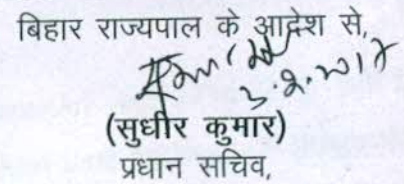 बिहार राज्यपाल के आदेश से,
(सुधीर कुमार)
प्रधान सचिव,